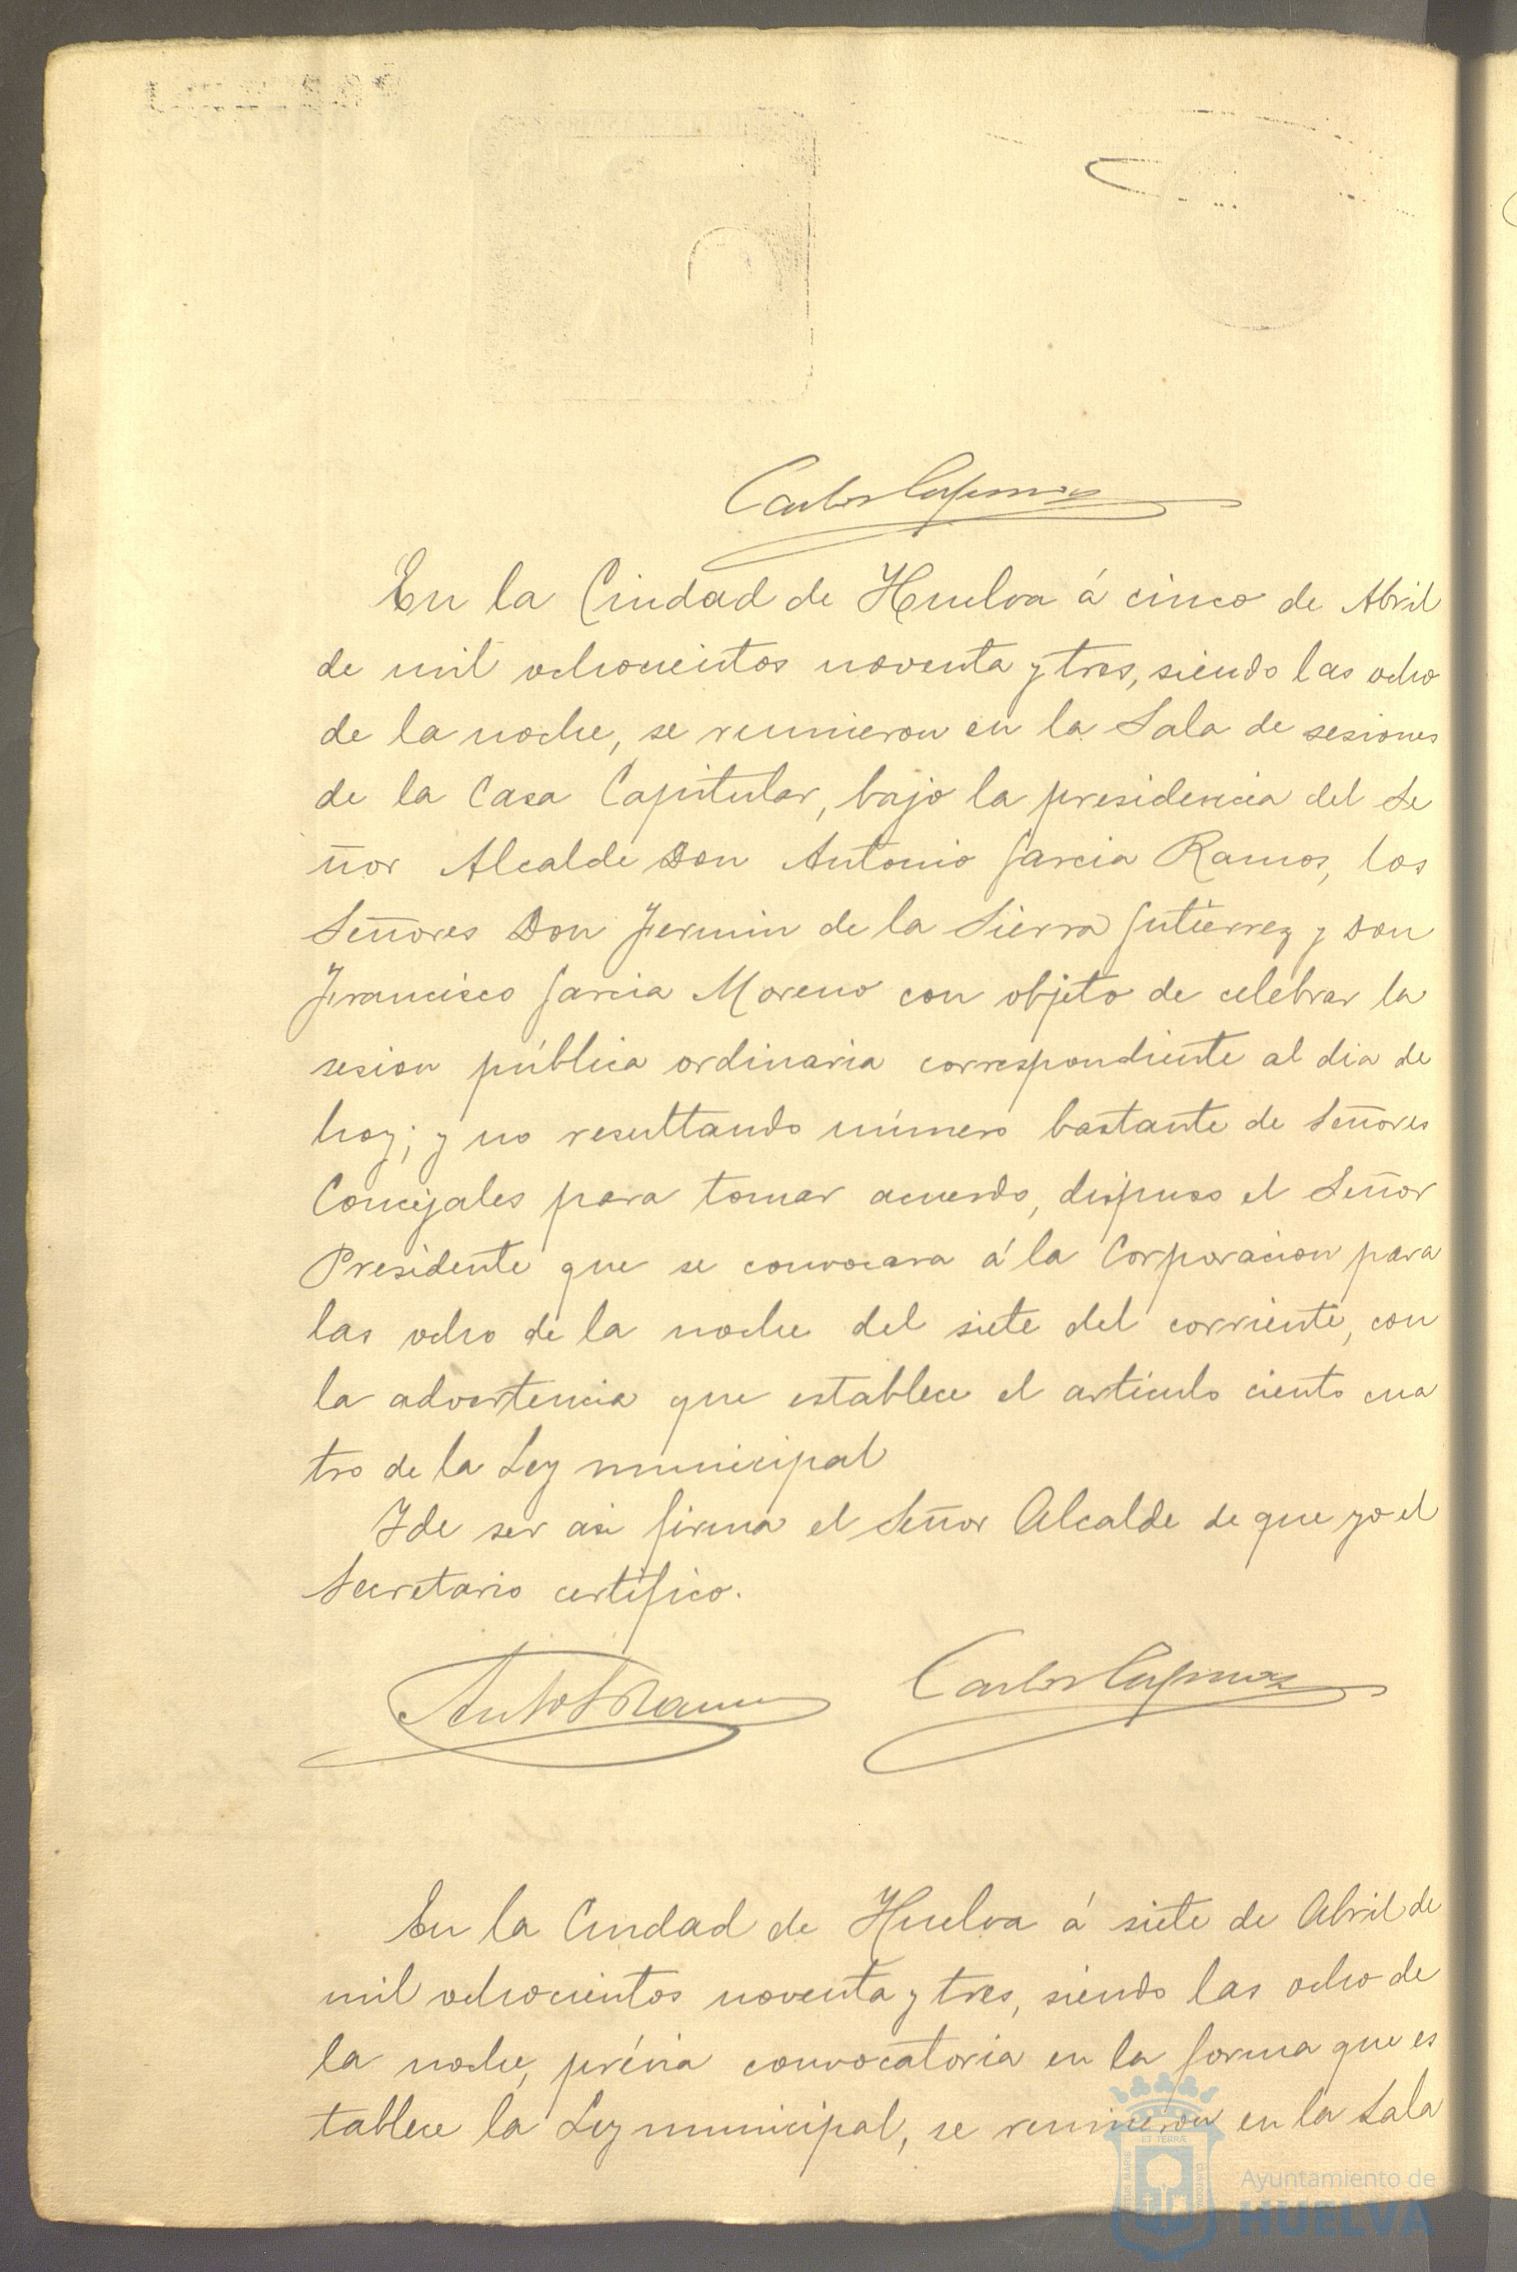 Carlos
En la Ciudad de Huelva á cinco de Abril
de mil ochocientos noventa y tres, siendo las ocho
de la noche, se reunieron en la Sala de sesiones
de la Casa Capitular, bajo la presidencia del Se
ñor Alcalde Don Antonio Garcia Ramos, los
Señores Don Fermin de la Sierra Gutierrez y Don
Francisco Garcia Moreno con objeto de celebrar la
sesion pública ordinaria correspondiente al dia de
hoy; y no resultando número bastante de Señores
Concejales para tomar acuerdo, dispuso el Señor
Presidente que se convocara á la Corporacion para
las ocho de la noche del siete del corriente, con
la advertencia que establece el articulo ciento cua
tro de la Ley municipal
Y de ser asi firma el Señor Alcalde de que yo el
Secretario certifico.
Carlos
En la Ciudad de Huelva á siete de Abril de
mil ochocientos noventa y tres, siendo las ocho de
la noche, prévia convocatoria en la forma que es
tablece la Ley municipal, se reunieron en la Sala
Ayuntamiento de
HUELVA